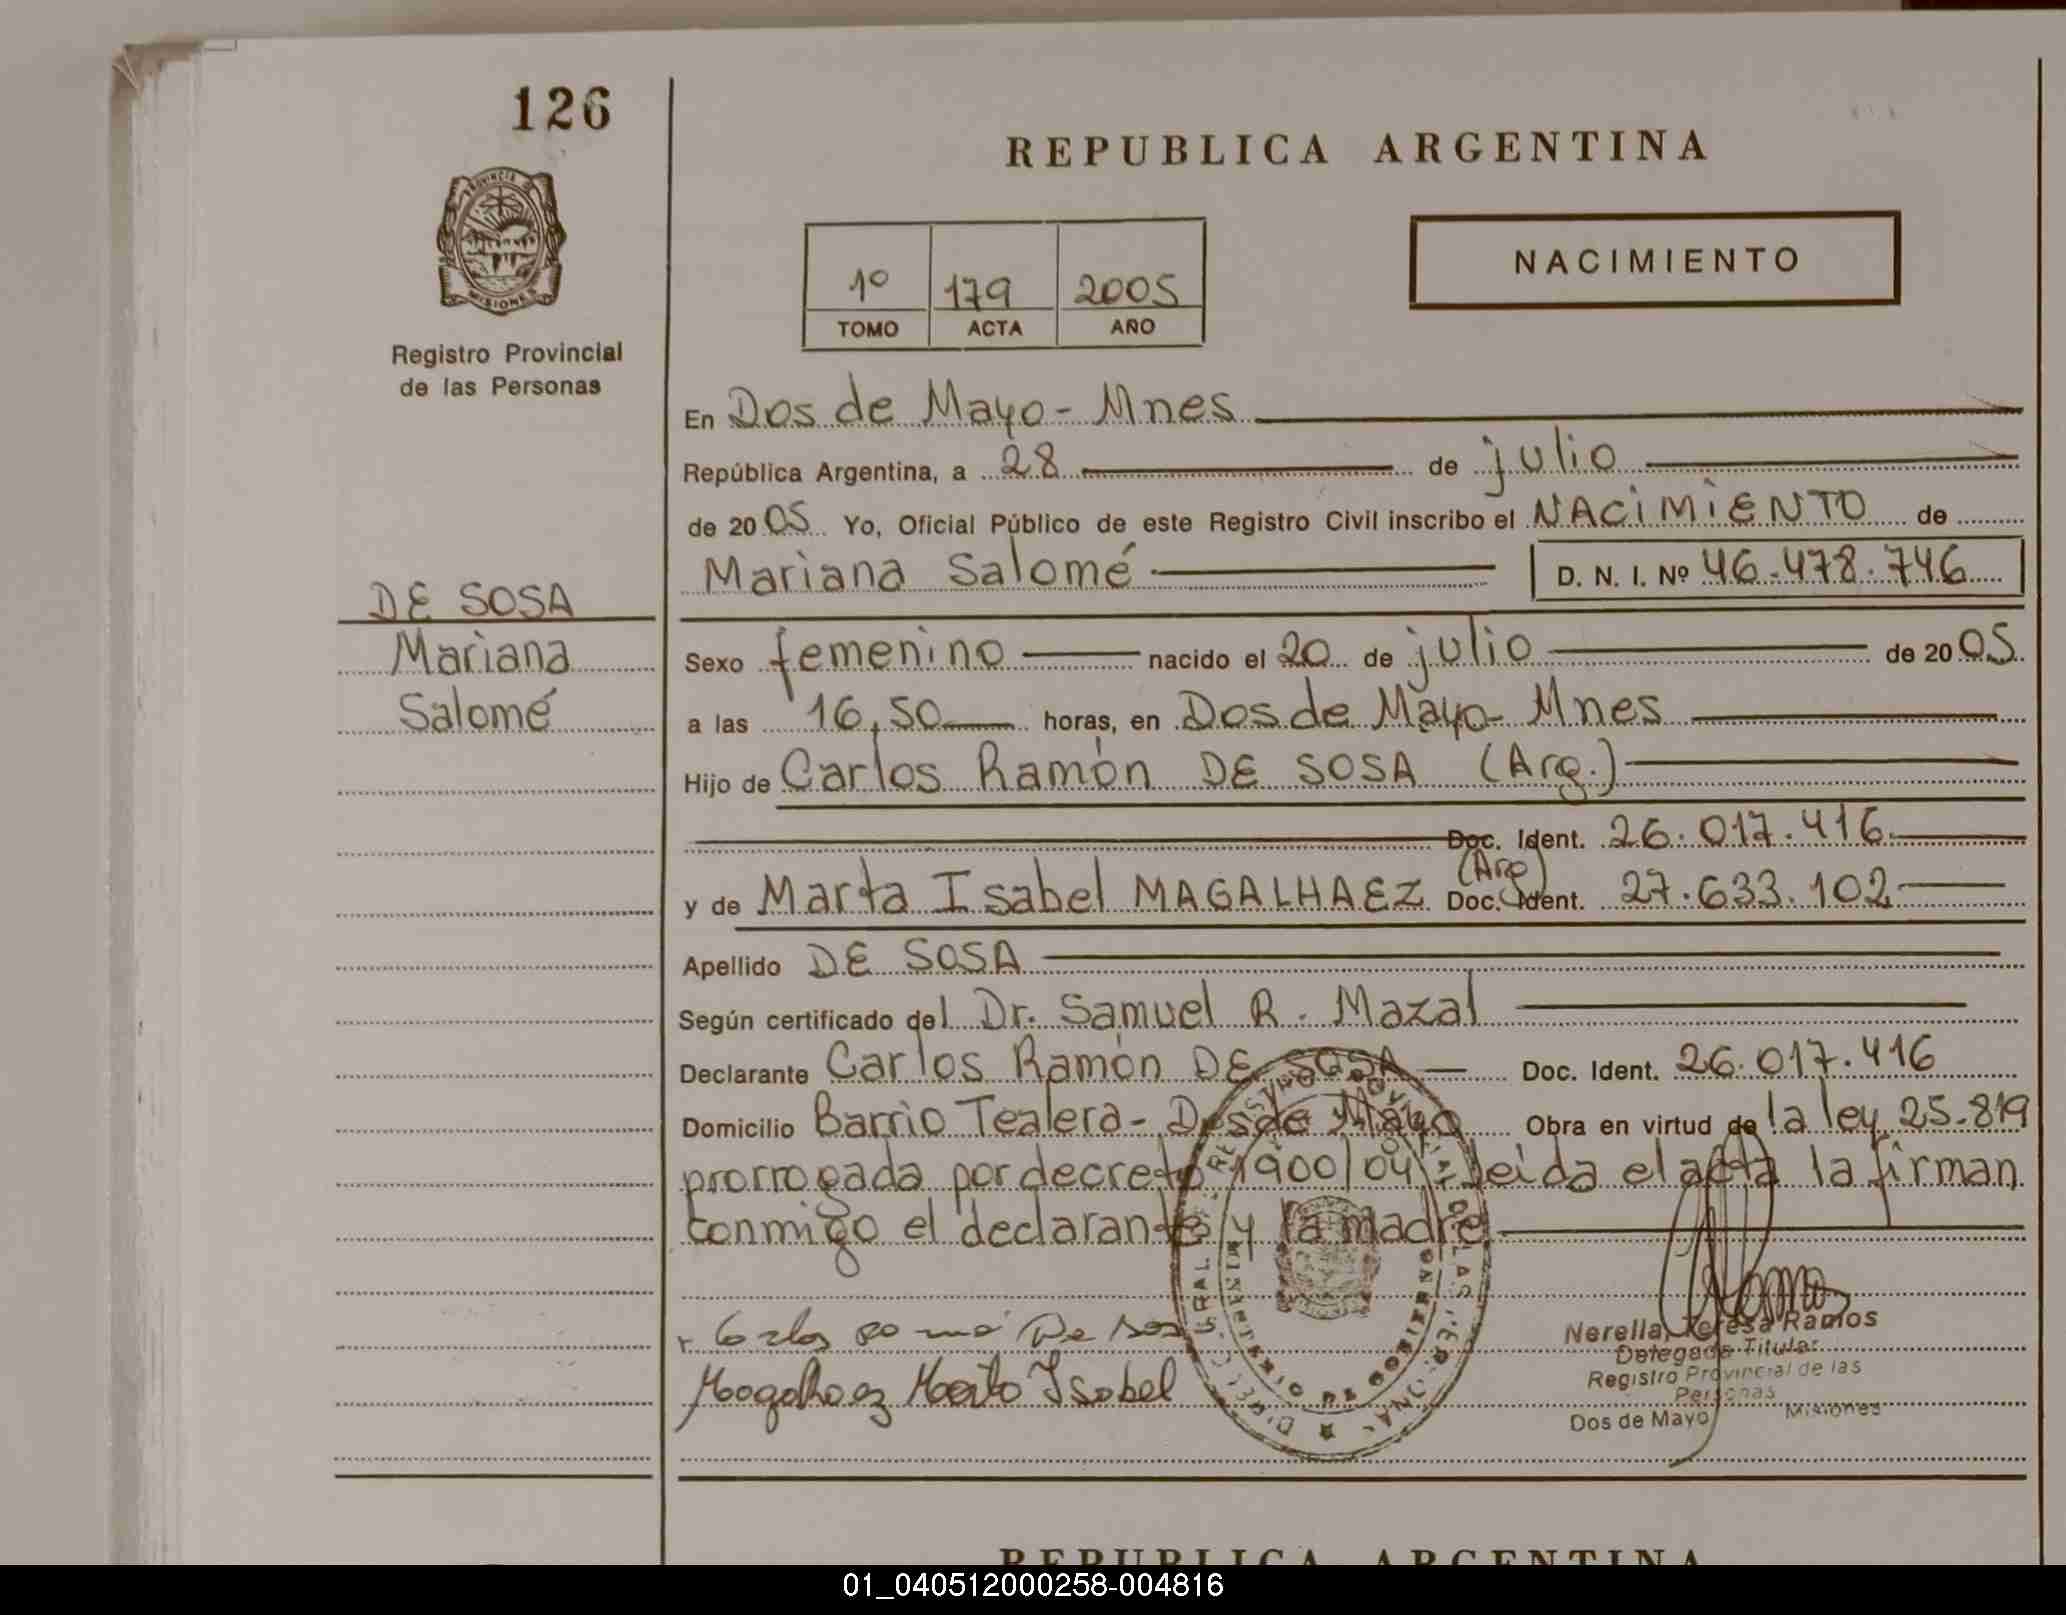 126
REPUBLICA ARGENTINA
PROVINCIA DE
MISIONES
Registro Provincial
de las Personas
1º 179 2005
TOMO ACTA AÑO
NACIMIENTO
En Dos de Mayo - Mnes
República Argentina, a 28 de julio
de 2005 Yo, Oficial Público de este Registro Civil inscribo el NACIMIENTO de
Mariana Salomé D. N. I. Nº 46.478.746
DE SOSA
Mariana
Salomé
Sexo femenino nacido el 20 de julio de 2005
a las 16,50 horas, en Dos de Mayo - Mnes
Hijo de Carlos Ramón DE SOSA (Arg.)
Doc. Ident. 26.017.416
y de Marta Isabel MAGALHAEZ (Arg) Doc. Ident. 27.633.102
Apellido DE SOSA
Según certificado del Dr. Samuel R. Mazal
Declarante Carlos Ramón DE SOSA Doc. Ident. 26.017.416
Domicilio Barrio Tealera - Dos de Mayo Obra en virtud de la ley 25.819
prorrogada por decreto 1900/04 Leida el acta la firman
conmigo el declarante y la madre
Magalhaez Marta Isabel
MINISTERIO DE GOBIERNO
Nerella Teresa Ramos
Delegada Titular
Registro Provincial de las
Personas
Dos de Mayo Misiones
REPUBLICA ARGENTINA
01_040512000258-004816